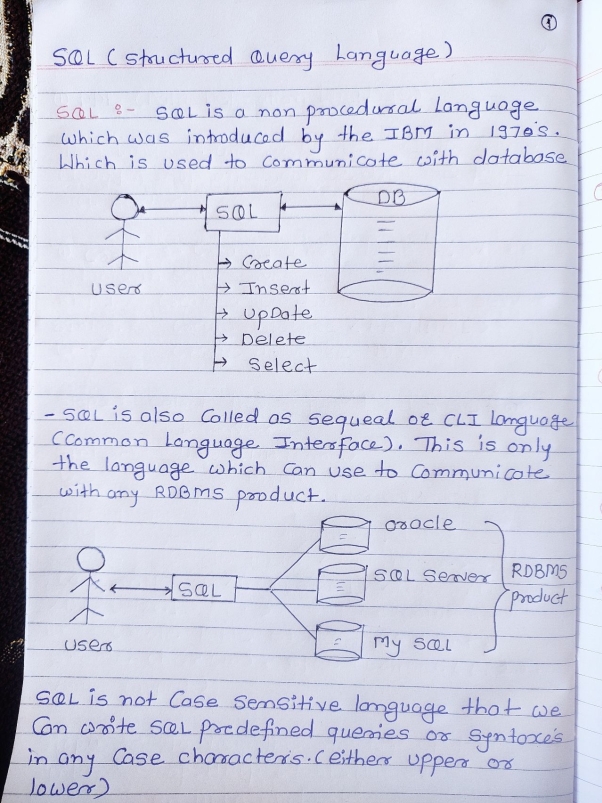 1
SQL (structured Query Language)
SQL :- SQL is a non procedural Language
which was introduced by the IBM in 1970's.
Which is used to communicate with database
DB
SQL
User
→ Create
→ Insert
→ UpDate
→ Delete
→ Select
- SQL is also Called as sequeal or CLI language
(Common Language Interface). This is only
the language which can use to Communicate
with any RDBMS product.
Oracle
SQL Server
RDBMS
product
SQL
User
My SQL
SQL is not Case sensitive language that we
Can write SQL predefined queries or syntaxe's
in any Case characters. (either upper or
lower)